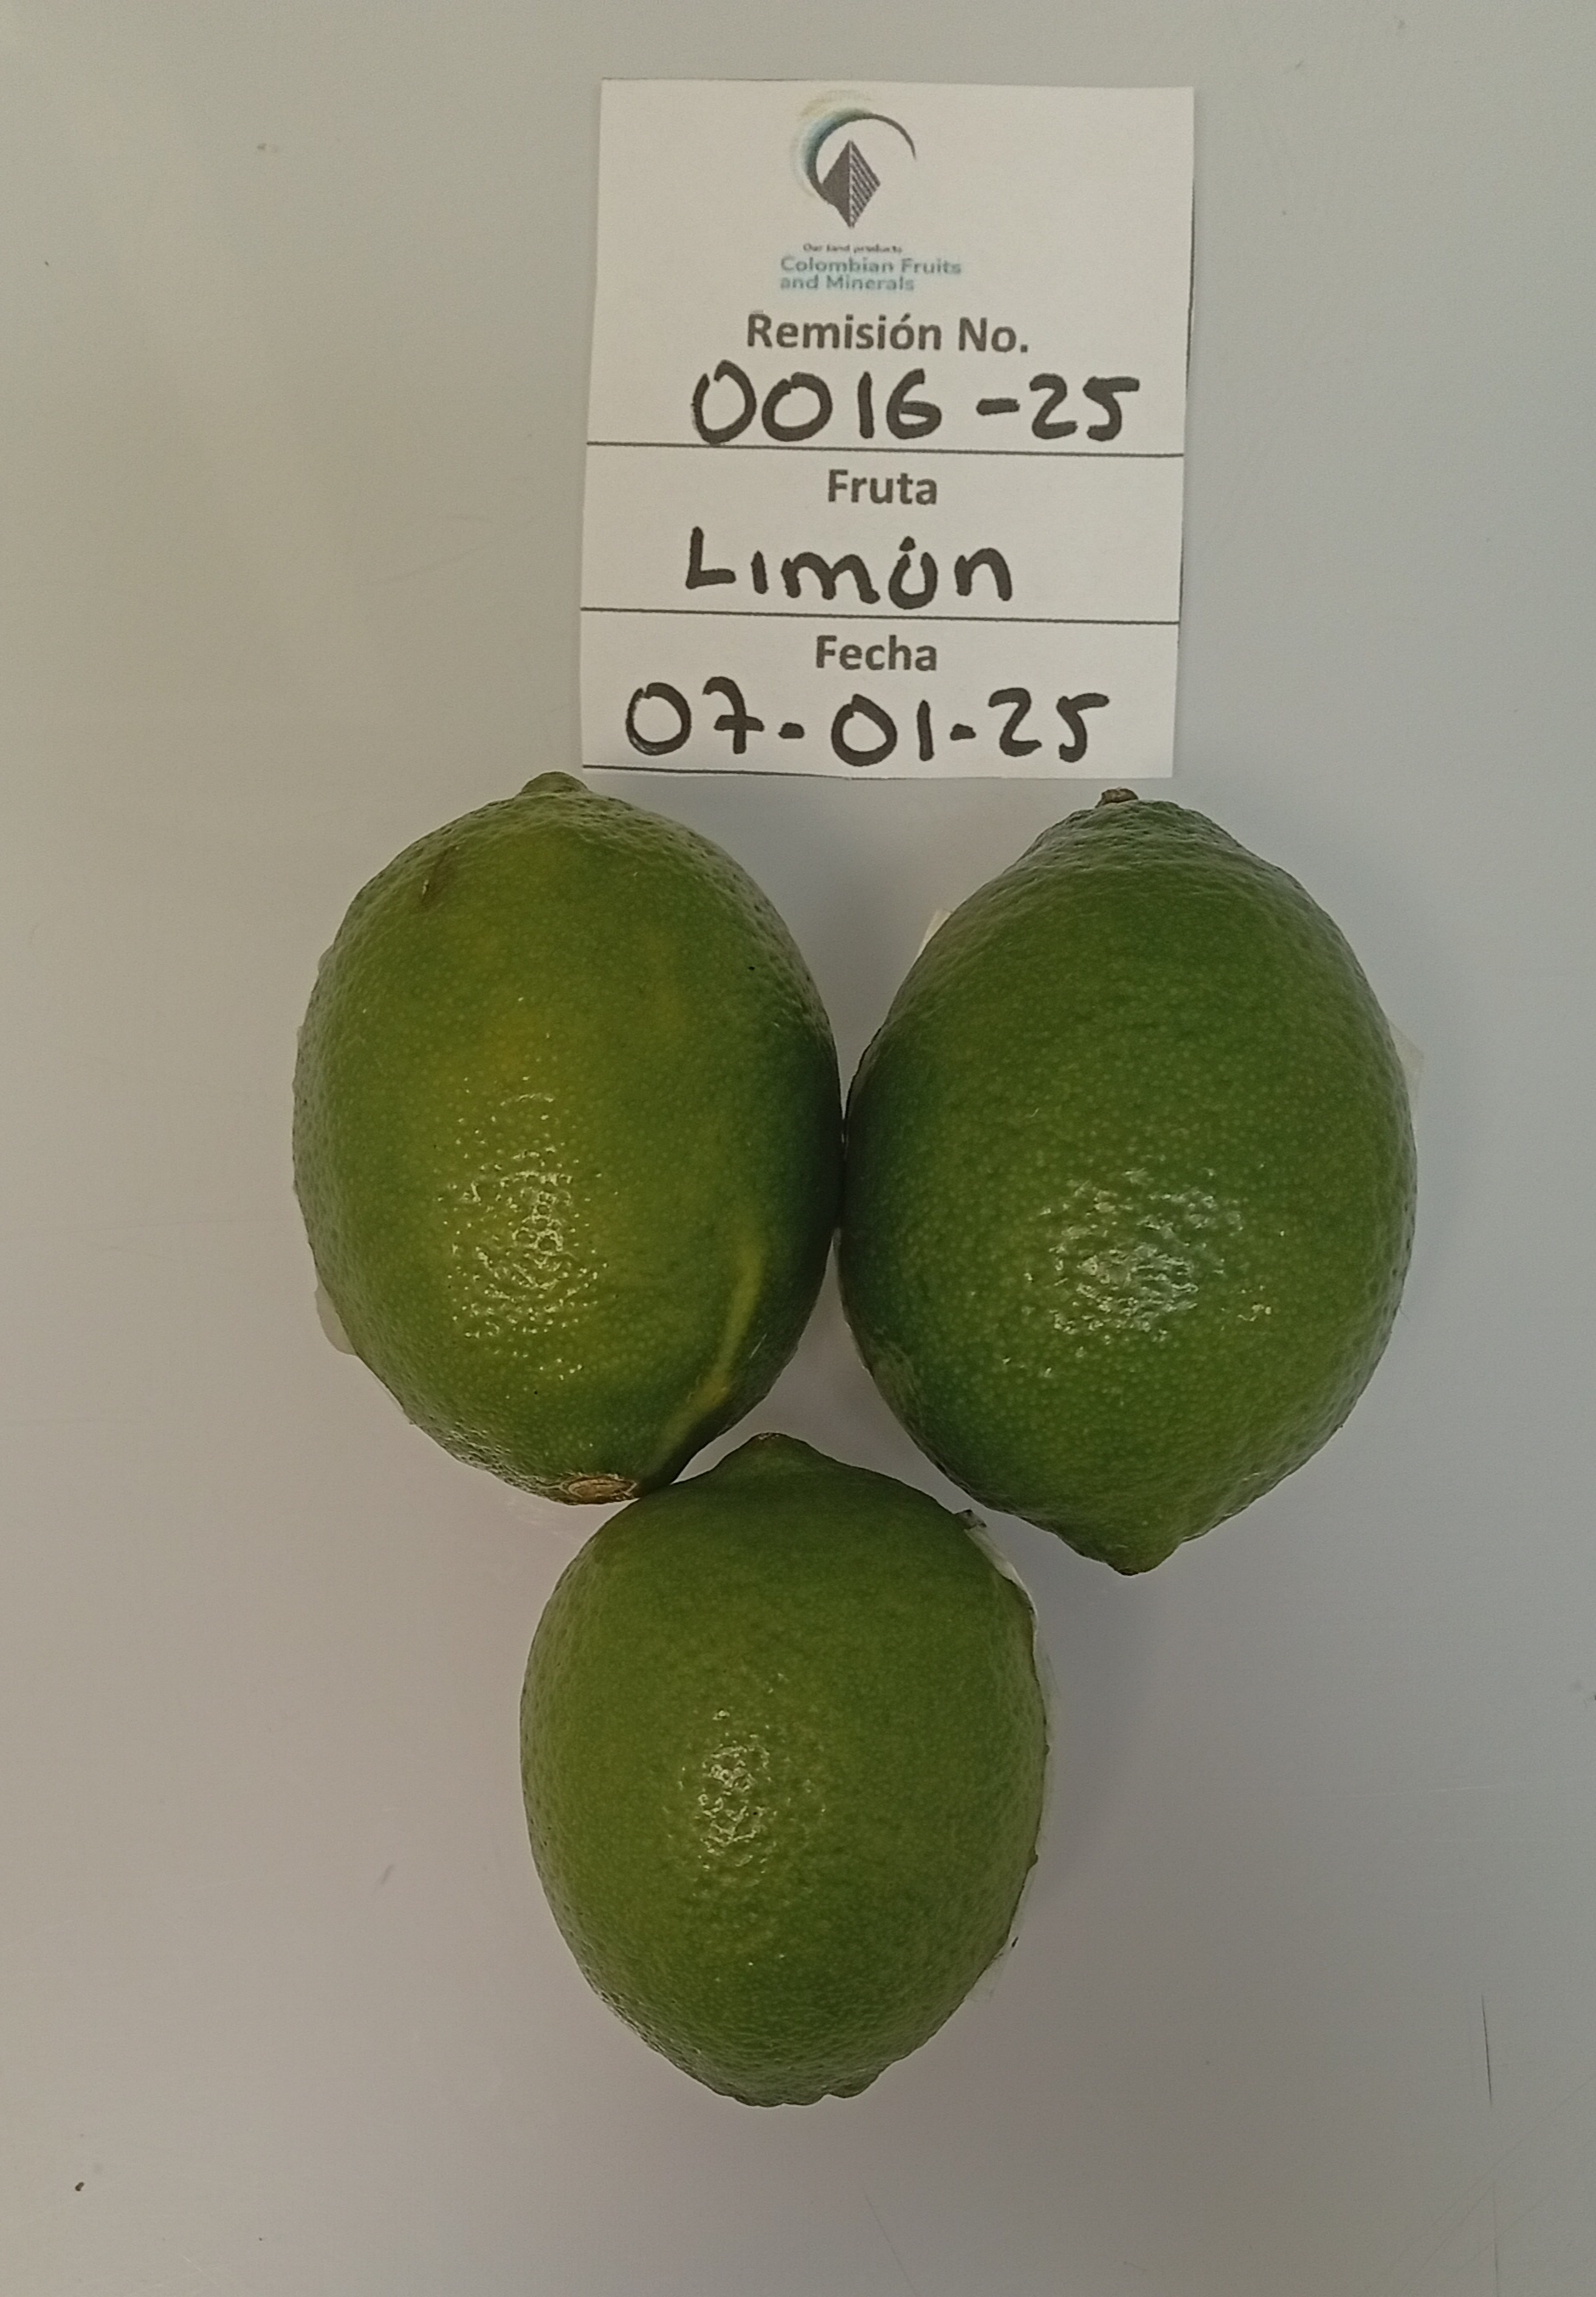 Our land products
Colombian Fruits
and Minerals
Remisión No.
0016-25
Fruta
Limón
Fecha
07-01-25